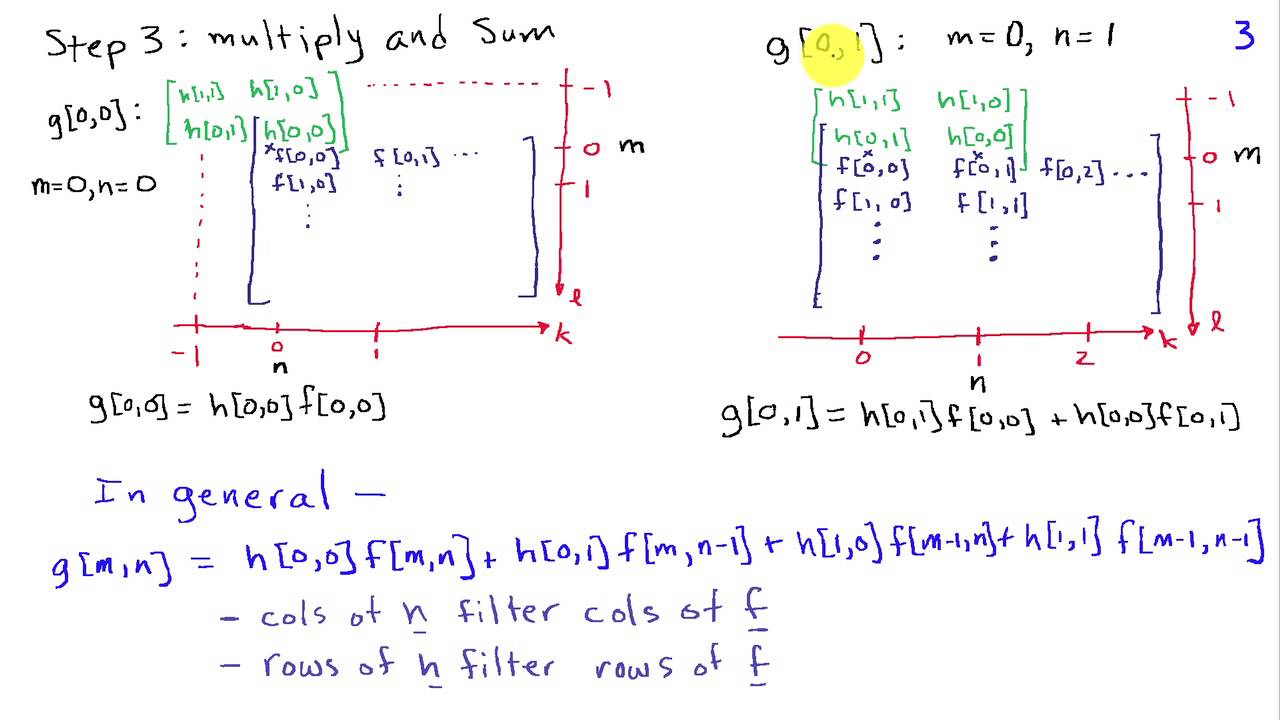 Step 3: multiply and Sum
g[0,0]:
h[1,1] h[1,0]
h[0,1] h[0,0]
m=0, n=0
f[0,0] f[0,1] ...
f[1,0]
-1
0 m
1
l
-1 0 1 k
n
g[0,0] = h[0,0]f[0,0]
g[0,1]: m=0, n=1
3
h[1,1] h[1,0]
h[0,1] h[0,0]
x x
f[0,0] f[0,1] f[0,2] ...
f[1,0] f[1,1]
-1
0 m
1
l
0 1 2 k
n
g[0,1] = h[0,1]f[0,0] + h[0,0]f[0,1]
In general —
g[m,n] = h[0,0]f[m,n] + h[0,1]f[m,n-1] + h[1,0]f[m-1,n] + h[1,1]f[m-1,n-1]
- cols of h filter cols of f
- rows of h filter rows of f